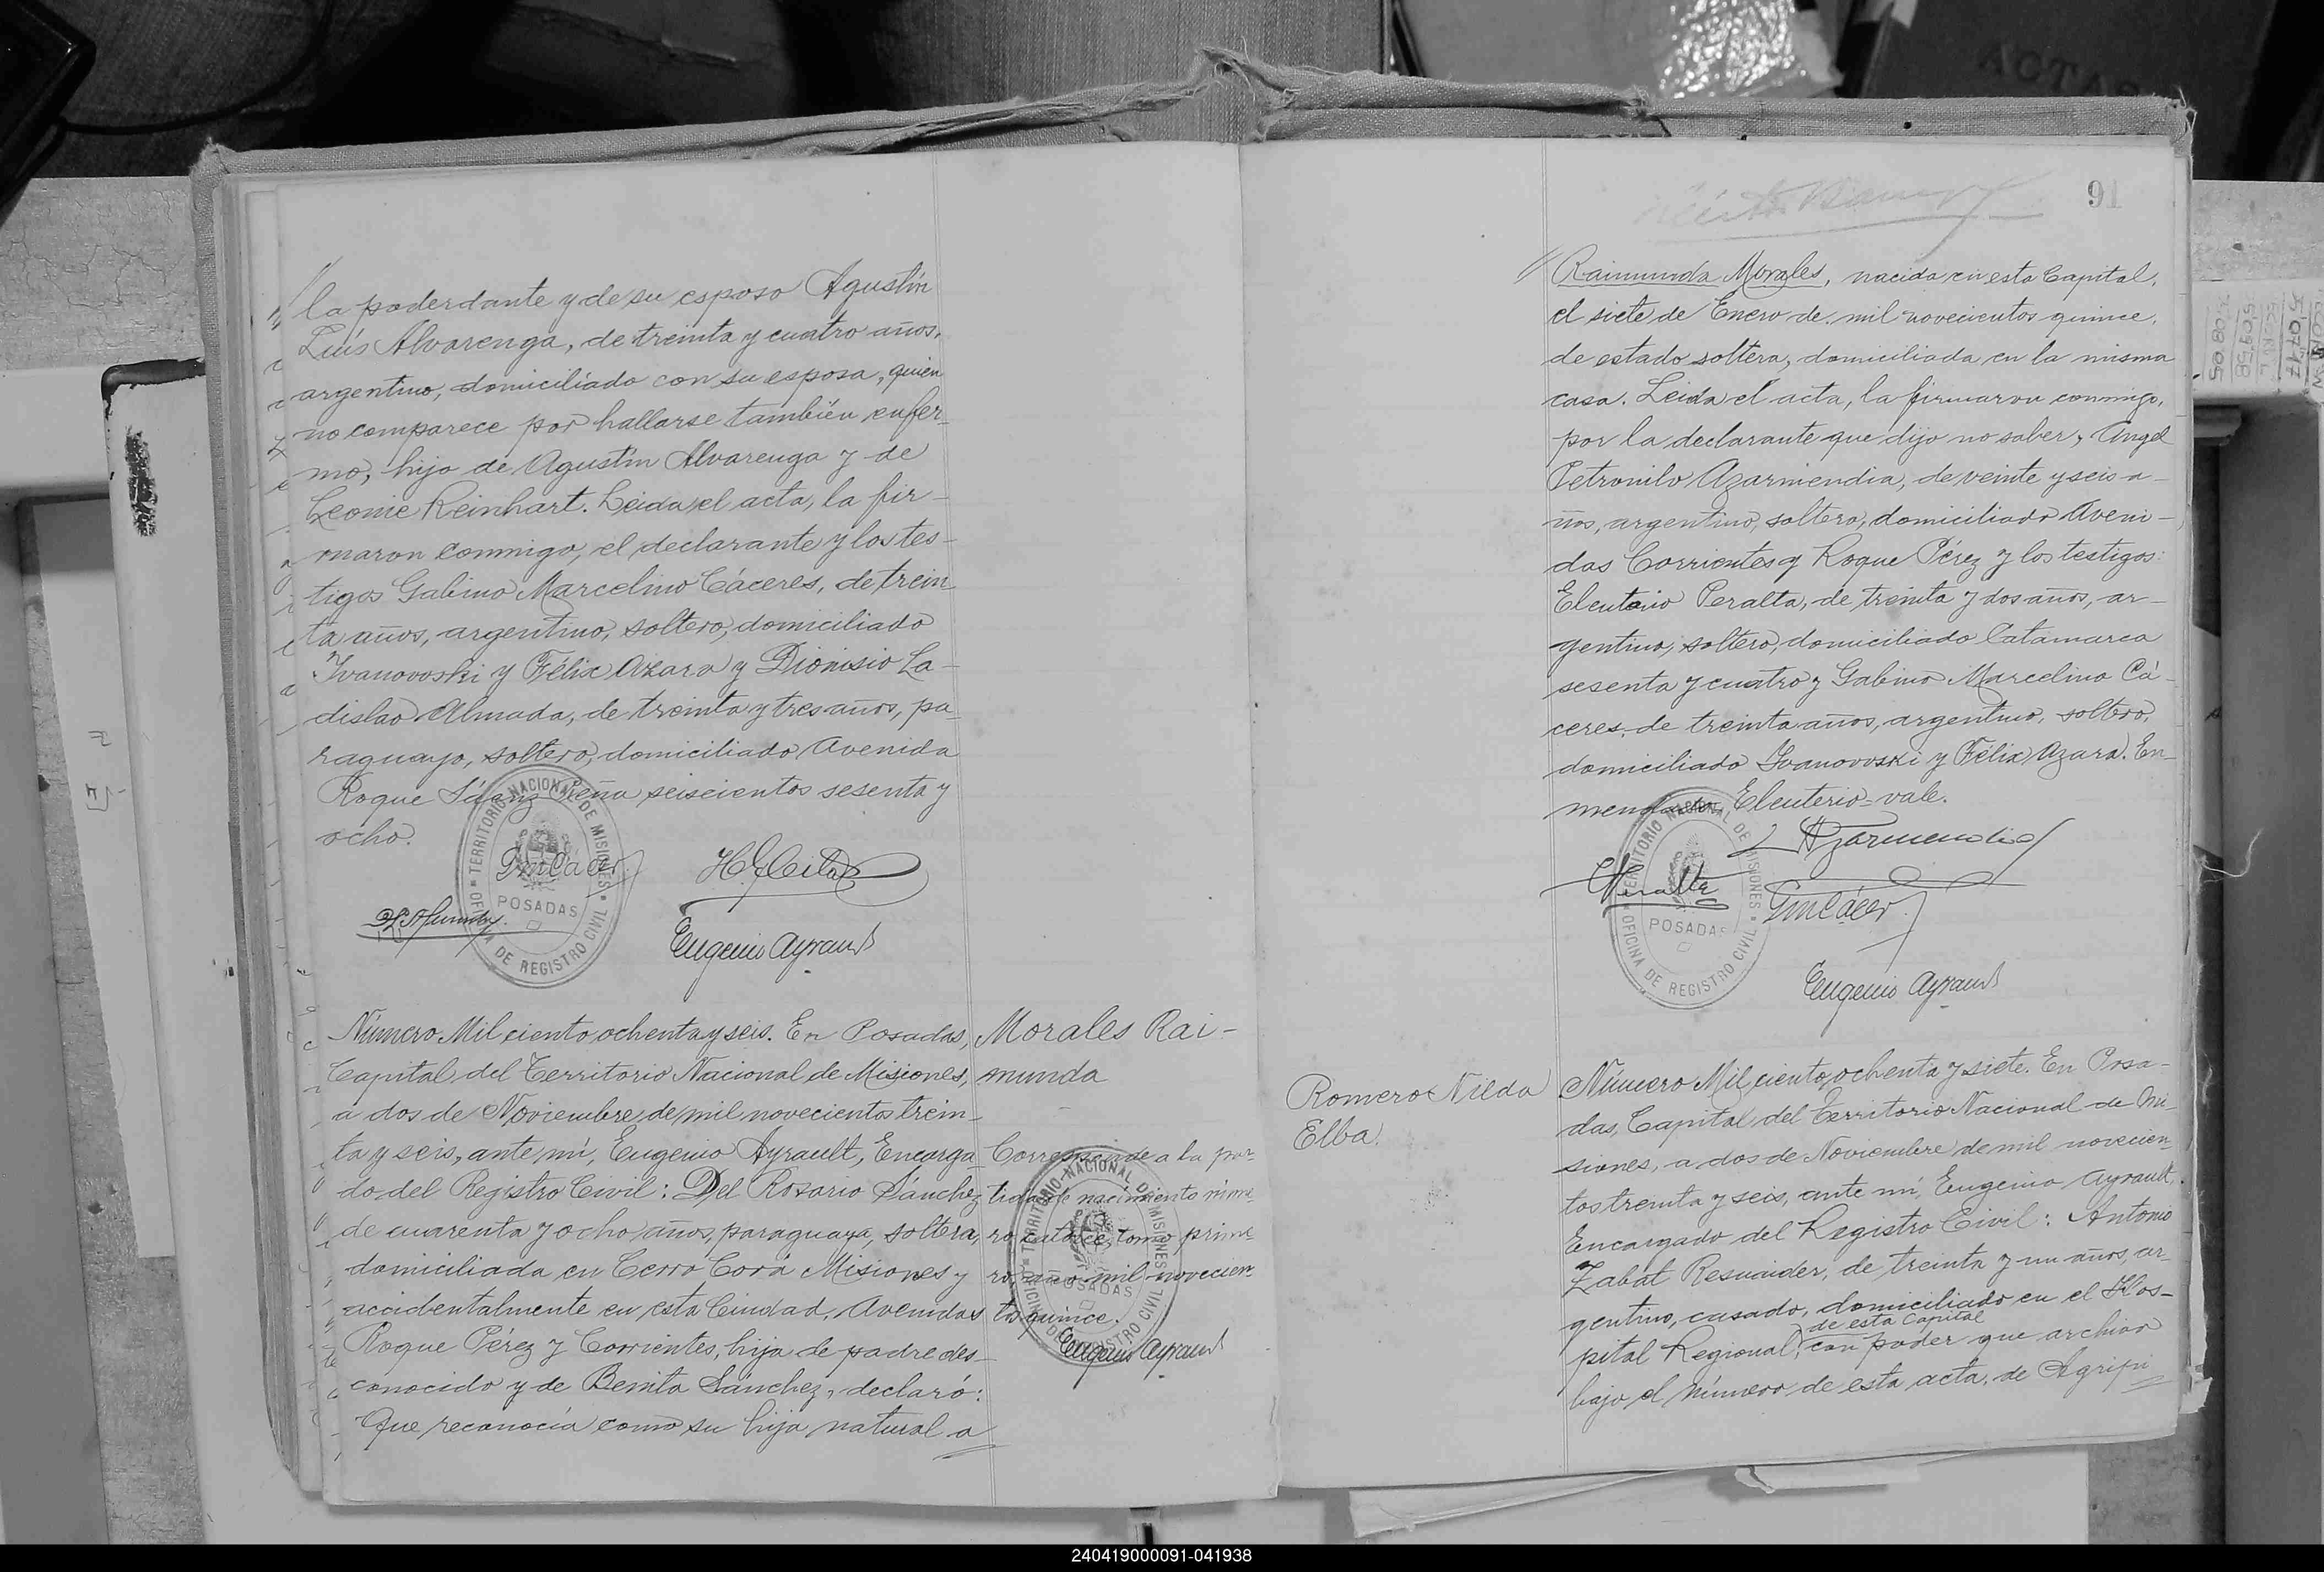 la poderdante y de su esposo Agustín
Luís Alvarenga, de treinta y cuatro años,
argentino, domiciliado con su esposa, quien
no comparece por hallarse también enfer-
mo, hijo de Agustín Alvarenga y de
Leonie Reinhart. Leida el acta, la fir-
maron conmigo, el declarante y los tes-
tigos Gabino Marcelino Cáceres, de trein
ta años, argentino, soltero, domiciliado
Ivanovoski y Félix Azara y Dionisio La-
dislao Almada, de treinta y tres años, pa-
raguayo, soltero, domiciliado Avenida
Roque Sáenz Peña seiscientos sesenta y
ocho.
TERRITORIO NACIONAL DE MISIONES
POSADAS
OFICINA DE REGISTRO CIVIL
GmCácer
Eugenio Ayrault
Número Mil ciento ochenta y seis. En Posadas,
Capital del Territorio Nacional de Misiones,
a dos de Noviembre de mil novecientos trein-
ta y seis, ante mí, Eugenio Ayrault, Encarga
do del Registro Civil: Del Rosario Sánchez
de cuarenta y ocho años, paraguaya, soltera,
domiciliada en Cerro Corá Misiones y
accidentalmente en esta Ciudad, Avenidas
Roque Pérez y Corrientes, hija de padre des-
conocido y de Benita Sánchez, declaró:
Que reconocía como su hija natural a
Morales Rai-
munda
Corresponde a la par-
tida de nacimiento núme
ro catorce, tomo prime
ro, año mil novecien-
tos quince.
TERRITORIO NACIONAL DE MISIONES
POSADAS
OFICINA DE REGISTRO CIVIL
Eugenio Ayrault
91
Raimunda Morales, nacida en esta Capital,
el siete de Enero de mil novecientos quince,
de estado soltera, domiciliada en la misma
casa. Leida el acta, la firmaron conmigo,
por la declarante que dijo no saber, Angel
Petronilo Azarmendia, de veinte y seis a-
ños, argentino, soltero, domiciliado Aveni-
das Corrientes y Roque Pérez y los testigos:
Eleuterio Peralta, de treinta y dos años, ar-
gentino, soltero, domiciliado Catamarca
sesenta y cuatro y Gabino Marcelino Cá-
ceres, de treinta años, argentino, soltero,
domiciliado Ivanovoski y Félix Azara. En-
mendado Eleuterio-vale.
TERRITORIO NACIONAL DE MISIONES
POSADAS
OFICINA DE REGISTRO CIVIL
Azarmendia
EPeralta
GmCácer
Eugenio Ayrault
Romero Nilda
Elba.
Número Mil ciento ochenta y siete. En Posa-
das, Capital del Territorio Nacional de Mi-
siones, a dos de Noviembre de mil novecien
tos treinta y seis, ante mí, Eugenio Ayrault,
Encargado del Registro Civil: Antonio
Zabat Resnaider, de treinta y un años, ar-
gentino, casado, domiciliado en el Hos-
de esta Capital
pital Regional, con poder que archivo
bajo el número de esta acta, de Agripi
240419000091-041938